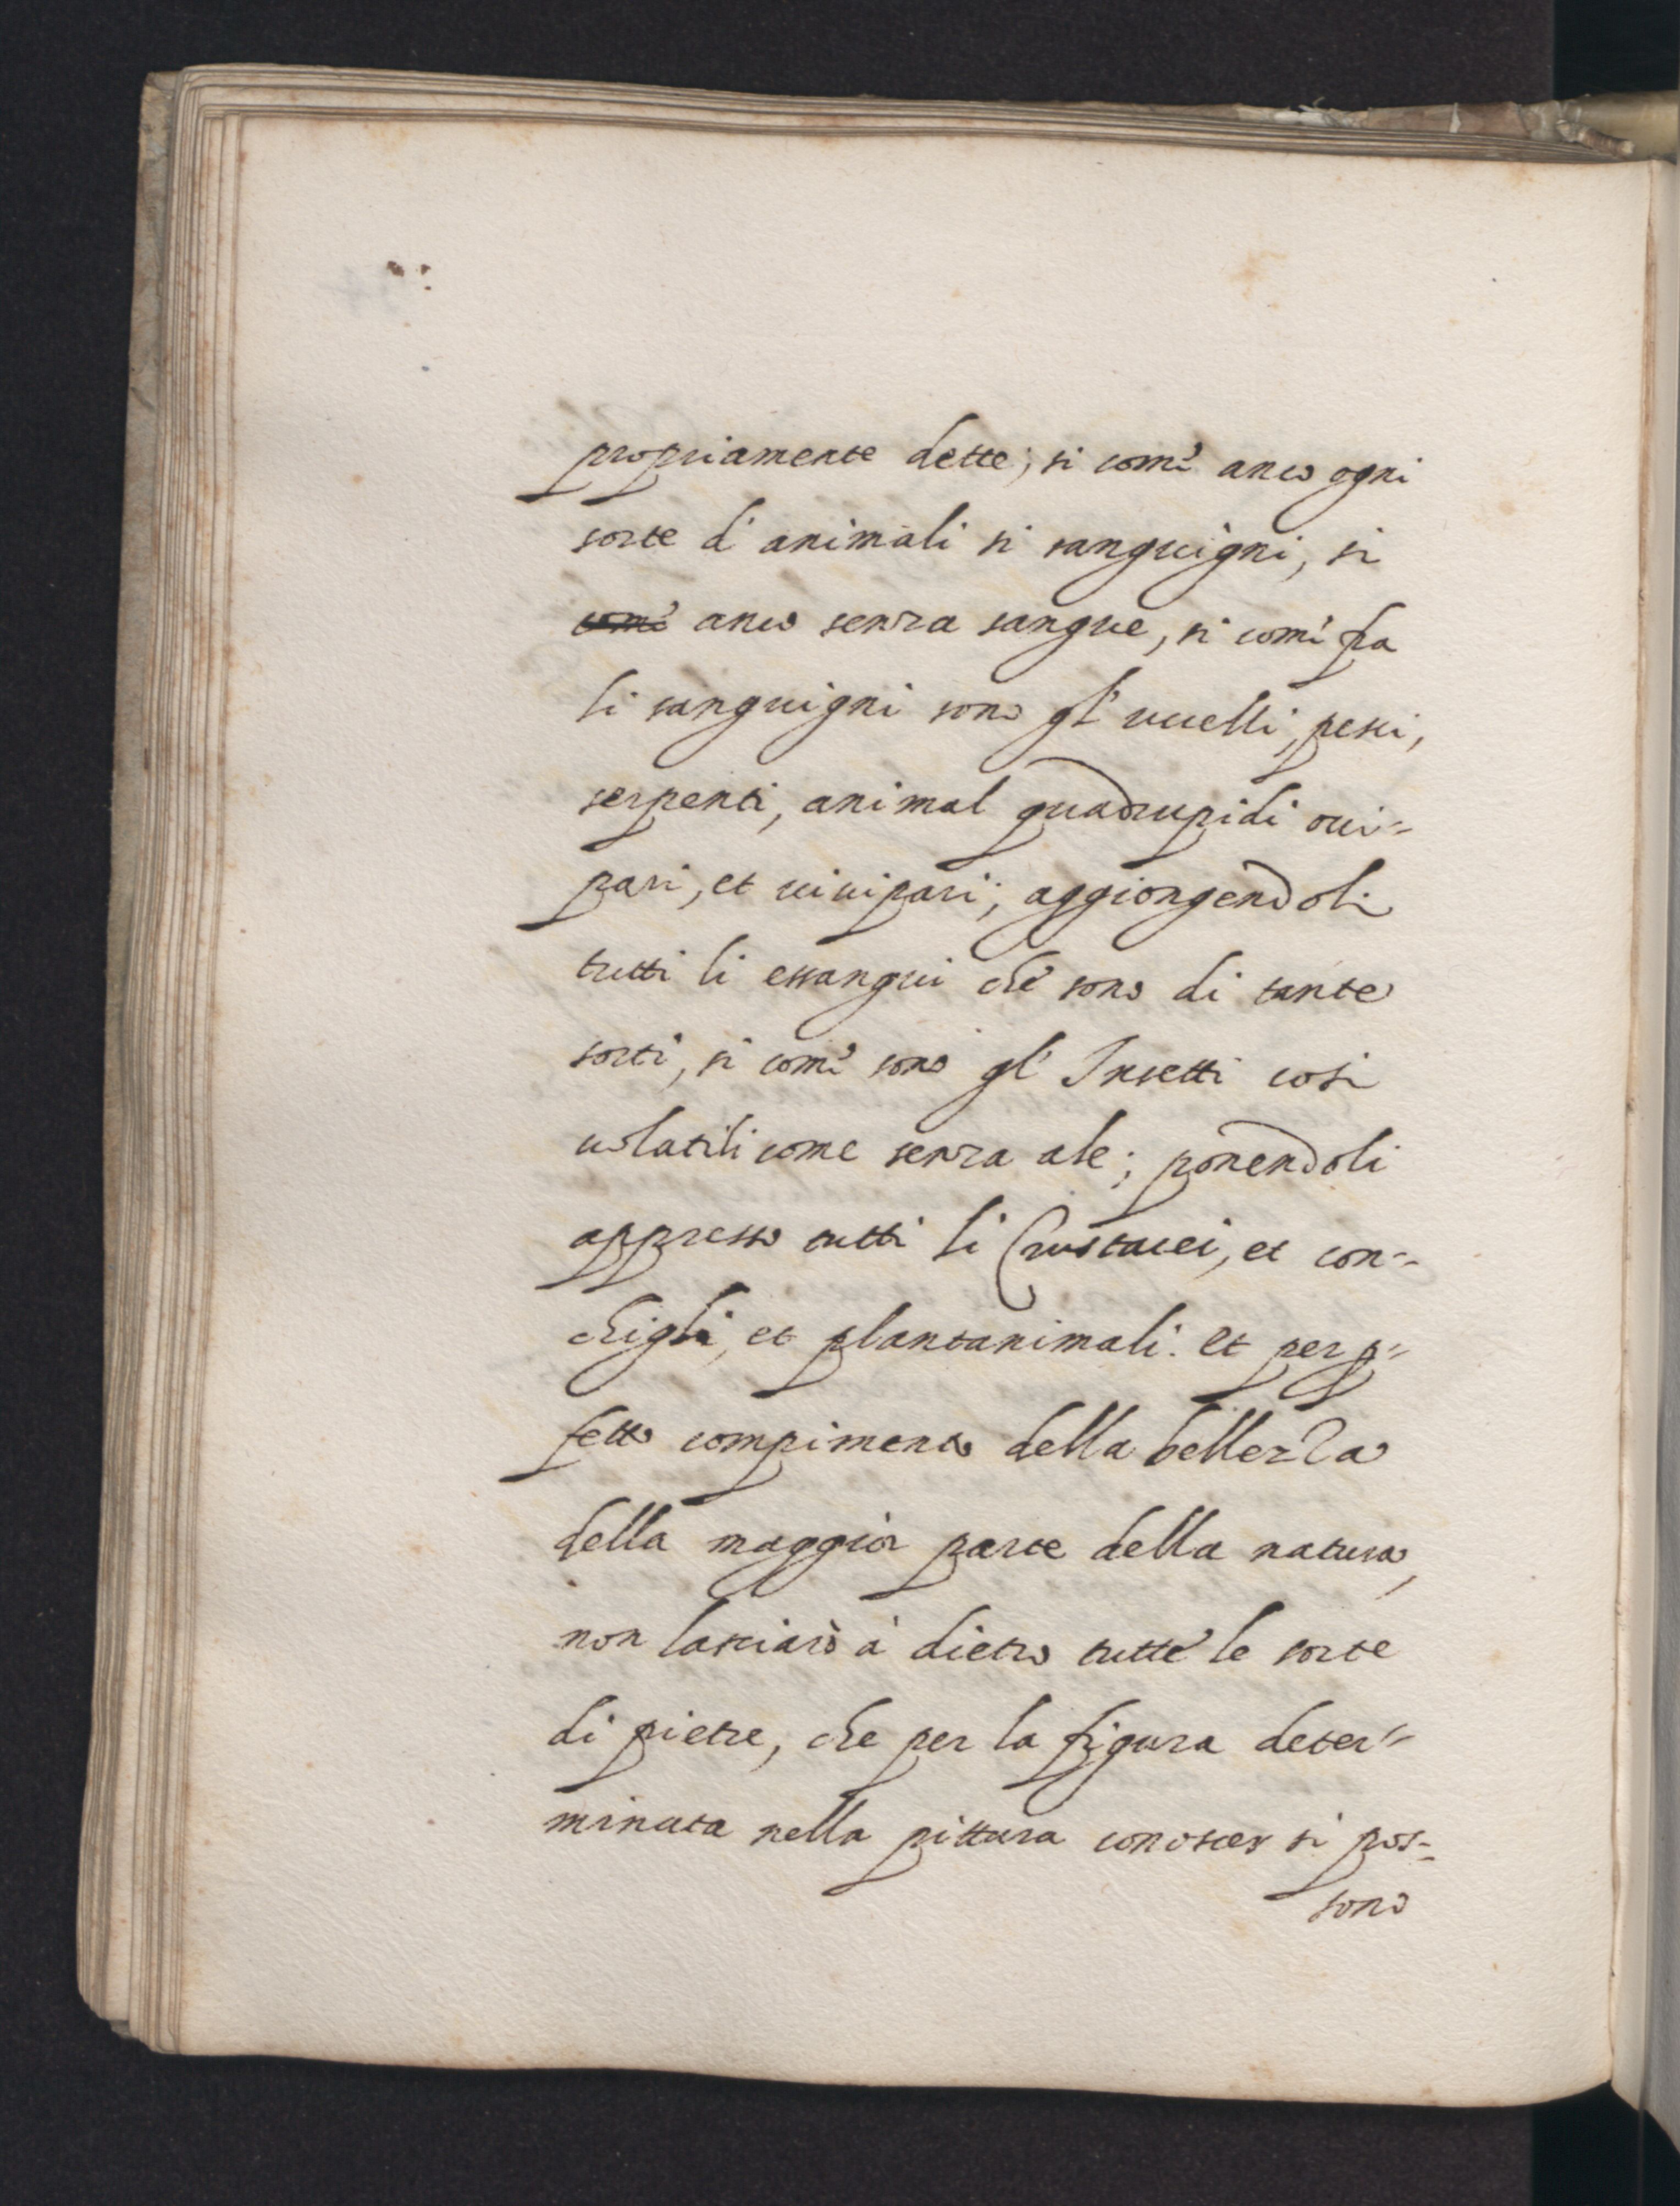 propriamente dette; si com' anco ogni
sorte d' animali si sanguigni, si
com' anco senza sangue, si com' fra
li sanguigni sono gl' uccelli, pesci,
serpenti, animal quadrupidi oui-
pari, et uiuipari; aggiongendoli
tutti li essangui che sono di tante
sorti, si com' sono gl' Insetti cosi
uolatili come senza ale; ponendoli
appresso tutti li Crustacei, et con-
chigli, et plantanimali. et per p-
fetto compimento della bellezza
della maggior parte della natura,
non lasciarò à dietro tutte le sorte
di pietre, che per la figura deter-
minata nella pittura conoscer si pos-
sono